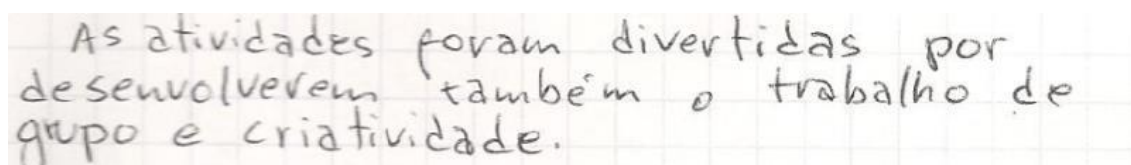 As atividades foram divertidas por
desenvolverem também o trabalho de
grupo e criatividade.